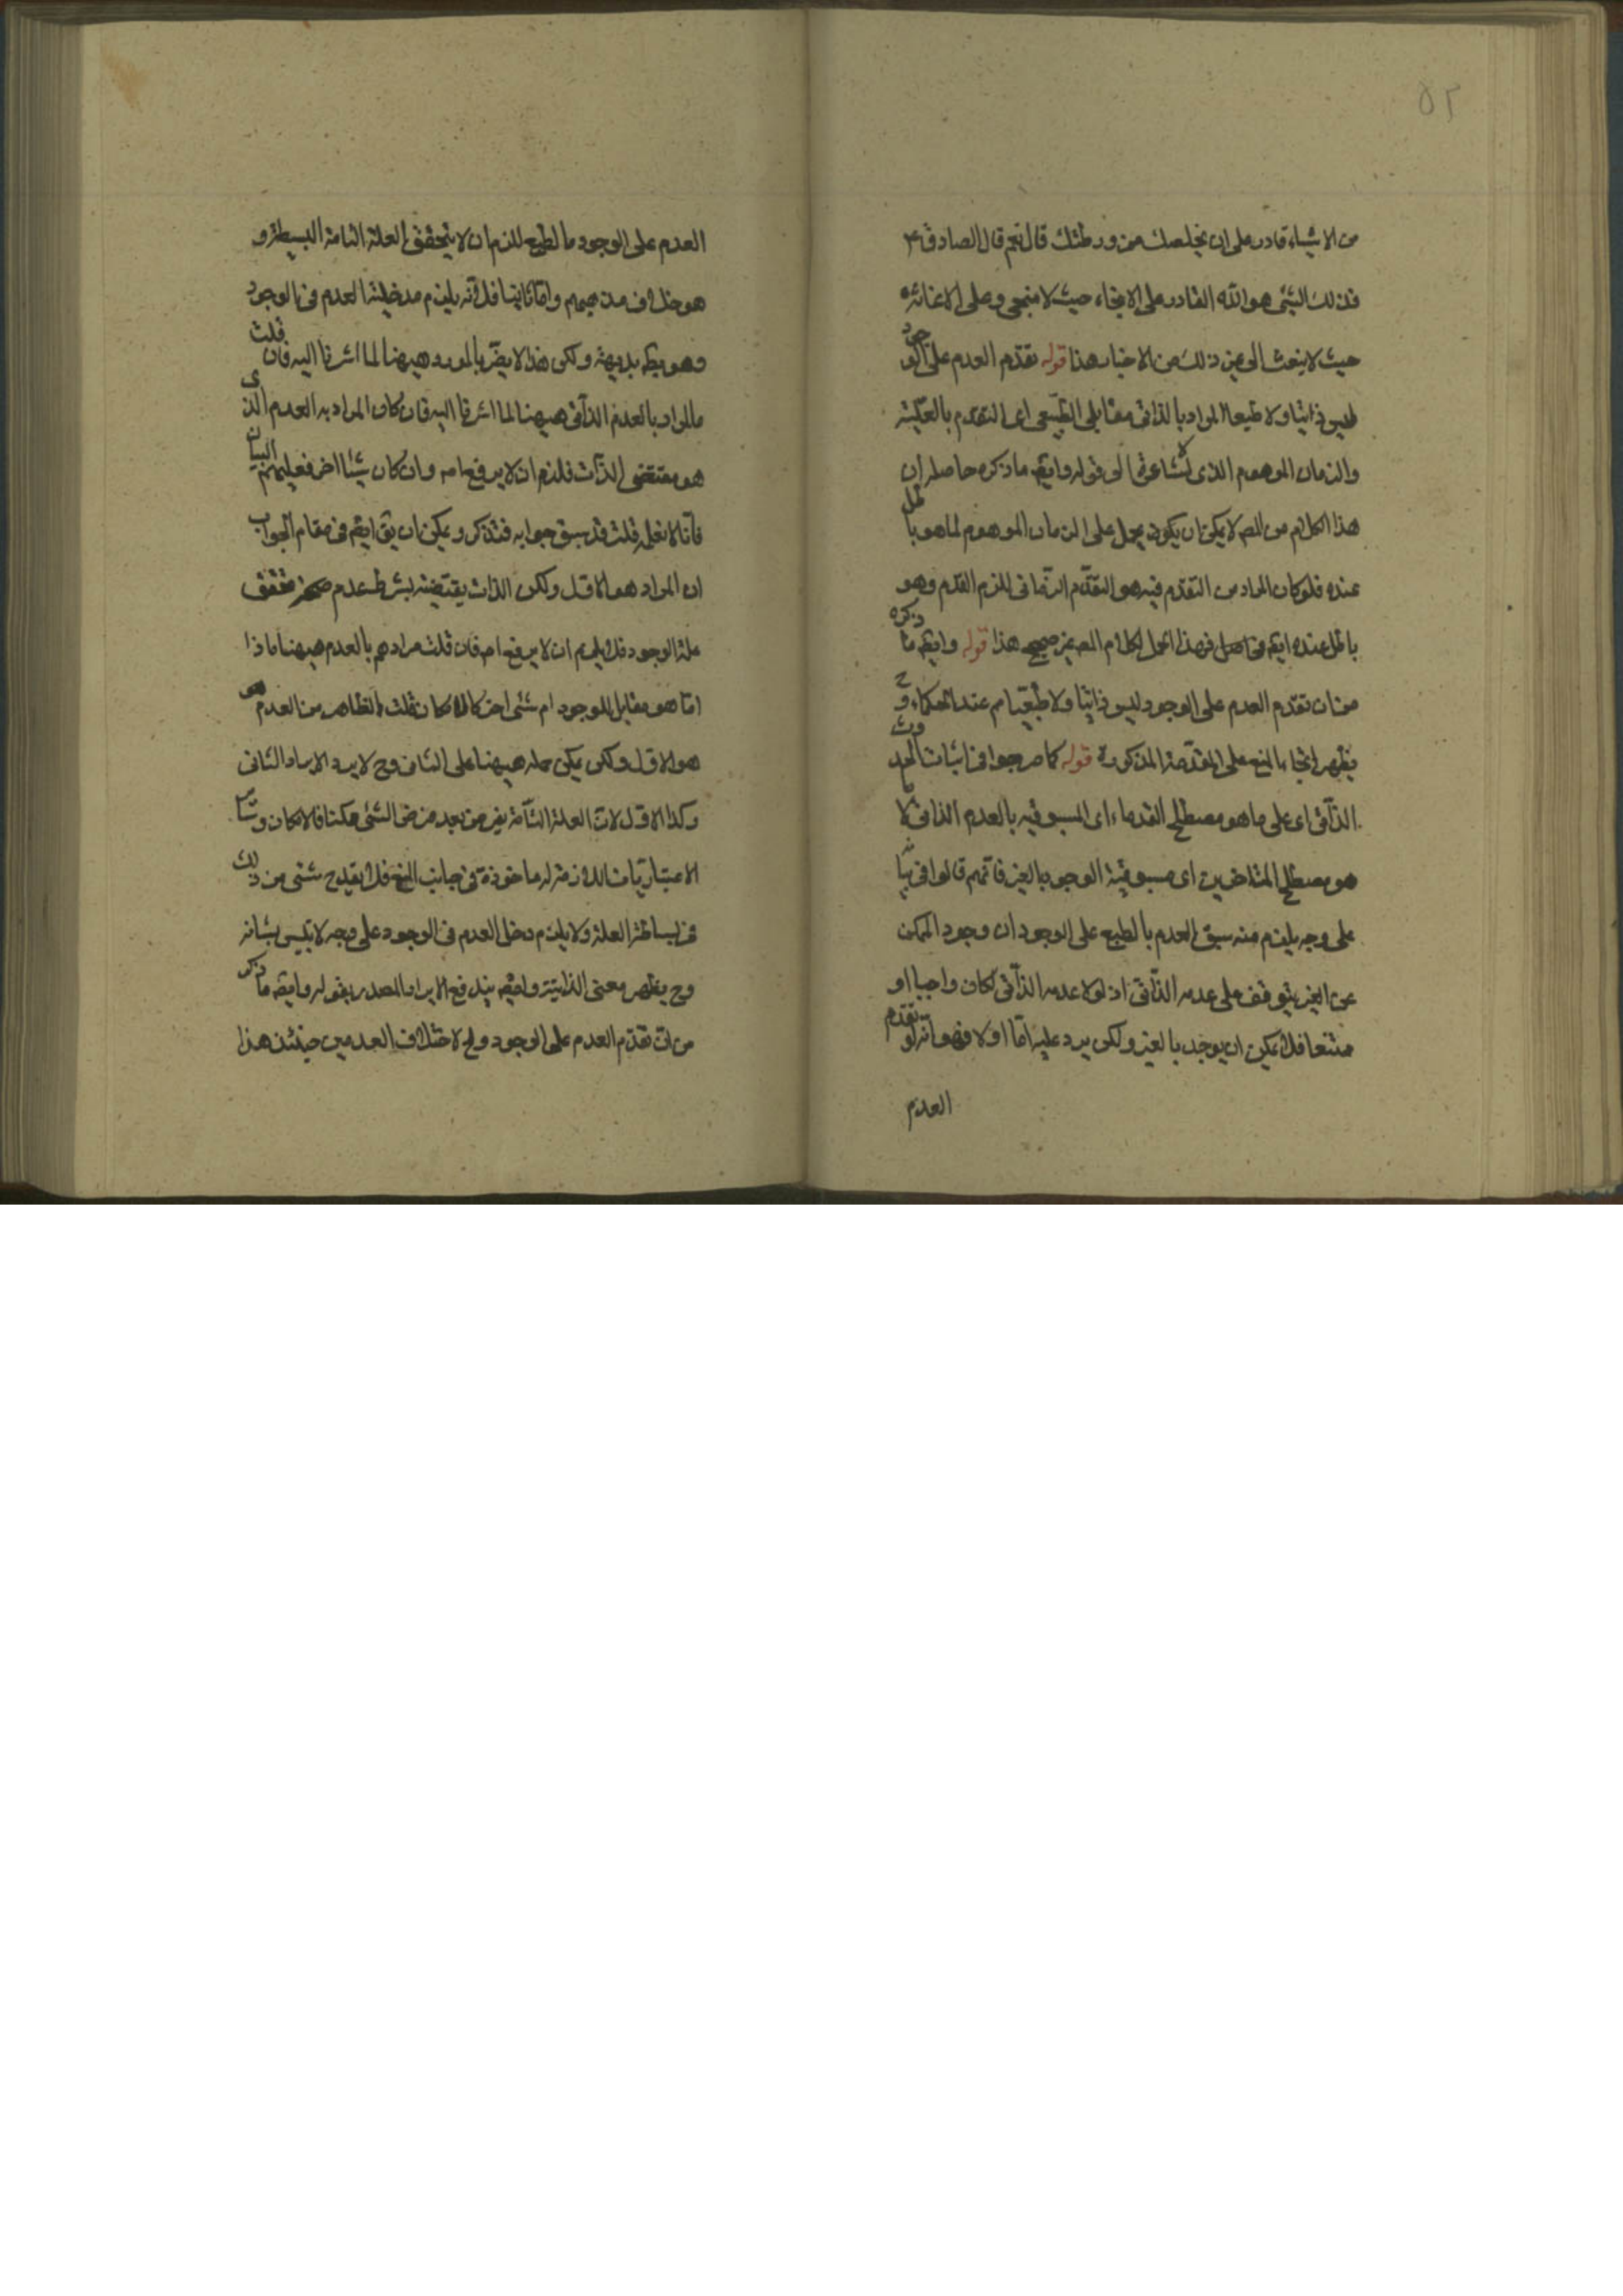 ٥٢
من الاشياء قادر على ان يخلصك من ورطتك قال نعم قال الصادق ع
فذلك الشئ هو الله القادر على الانجاء حيث لا منجى وعلى الاغاثة
حيث لا ينعث الى غير ذلك من الاخبار هذا قوله تقدم العدم على الوجود
ليس ذاتيا ولا طبيعا المراد بالذاتى مقابلى الطبيعى اى التقدم بالعلية
والزمان الموهوم الذى الاشاعرة الى قوله وايضه ما ذكره حاصله ان
هذا الكلام من المصه لا يمكن ان يكون يحمل على الزمان الموهوم لما هو باطل
عنده فلو كان المراد من التقدم فيه هو التقدم الزمانى للزم القدم وهو
باطل عنده ايضه فهذا الحمل لكلام المصه غير صحيح هذا قوله وايضه ما ذكره
من ان تقدم العدم على الوجود ليس ذاتيا ولا طبيعيا م عند الحكماء وح
يظهر اتجاه المنع على المقدمة المذكورة قوله كما صرحوا فى اثبات الحدوث
الذاتى اى على ما هو مصطلح القدماء اى المسبوقيه بالعدم الذاتى لا ما
هو مصطلح المتاخرين اى مسبوقية الوجود بالغير فانهم قالوا فى بيانه
على وجه يلزم منه سبق العدم بالطبع على الوجود ان وجود الممكن
عن الغير يتوقف على عدمه الذاتى اذ لولا عدمه الذاتى لكان واجبا او
ممتنعا فلا يمكن ان يوجد بالغير ولكن يرد عليه اما اولا فهو انه لو تقدم
العدم
العدم على الوجود بالطبع للزم ان لا يتحقق العلة التامة البسيطة و
هو خلاف مذهبهم واما ثانيا فلانه يلزم مدخلية العدم فى الوجود
وهو بطه بديهة ولكن هذا لا يضر بالمورد هيهنا لما اشرنا اليه فان قلت
ما المراد بالعدم الذاتى هيهنا لما اشرنا اليه فان كان المراد به العدم الذى
هو مقتضى الذات فلزم ان لا يرفع امه وان كان شيئا اخر فعليهم البيان
فانا لا نعلمه قلت قد سبق جوابه فتذكر ويمكن ان يق ايضه فى مقام الجواب
ان المراد هو الاول ولكن الذات يقتضيه بشرط عدم تحقق
علة الوجود فلا يلزم ان لا يرفع امه فان قلت مرادهم بالعدم هيهنا ماذا
اما هو مقابل للوجود ام شئى اخر كالامكان قلت الظاهر من العدم هو
هو الاول ولكن يمكن حمله هيهنا على الثانى وح لا يرد الايراد الثانى
وكذا الاول لان العلة التامة يفرض بعد فرض الشئى ممكنا فالامكان وسائر
الاعتباريات اللازمة له ماخوذة فى جانب المعلول فلا يقدح شئى من ذلك
فى بساطة العلة ولا يلزم دخل العدم فى الوجود على وجه لا يليس بشانه
وح يظهر معنى الذاتية وايضه يندفع الايراد المصدر بقوله وايضه ما ذكر
من ان تقدم العدم على الوجود ولاختلاف العدمين حينئذ هذا